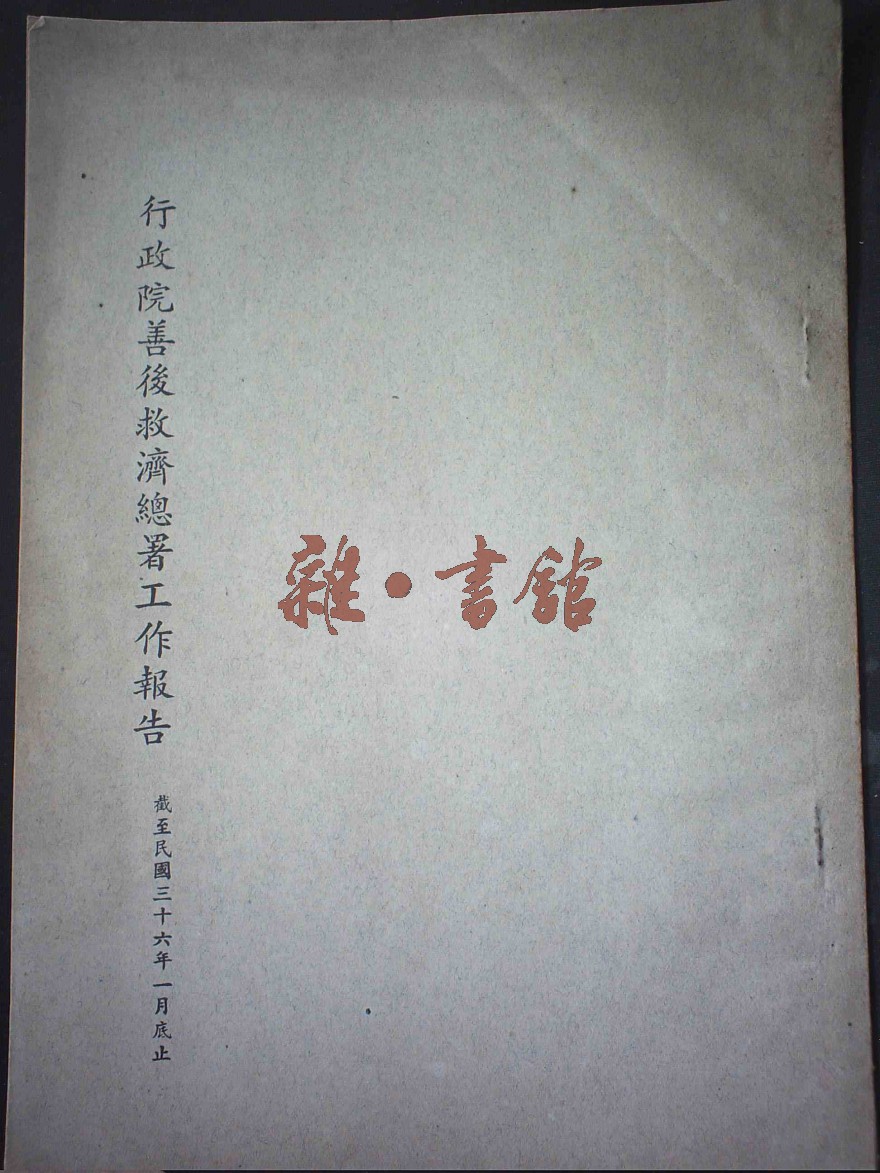 行政院善後救濟總署工作報告
截至民國三十六年一月底止
雜·書館